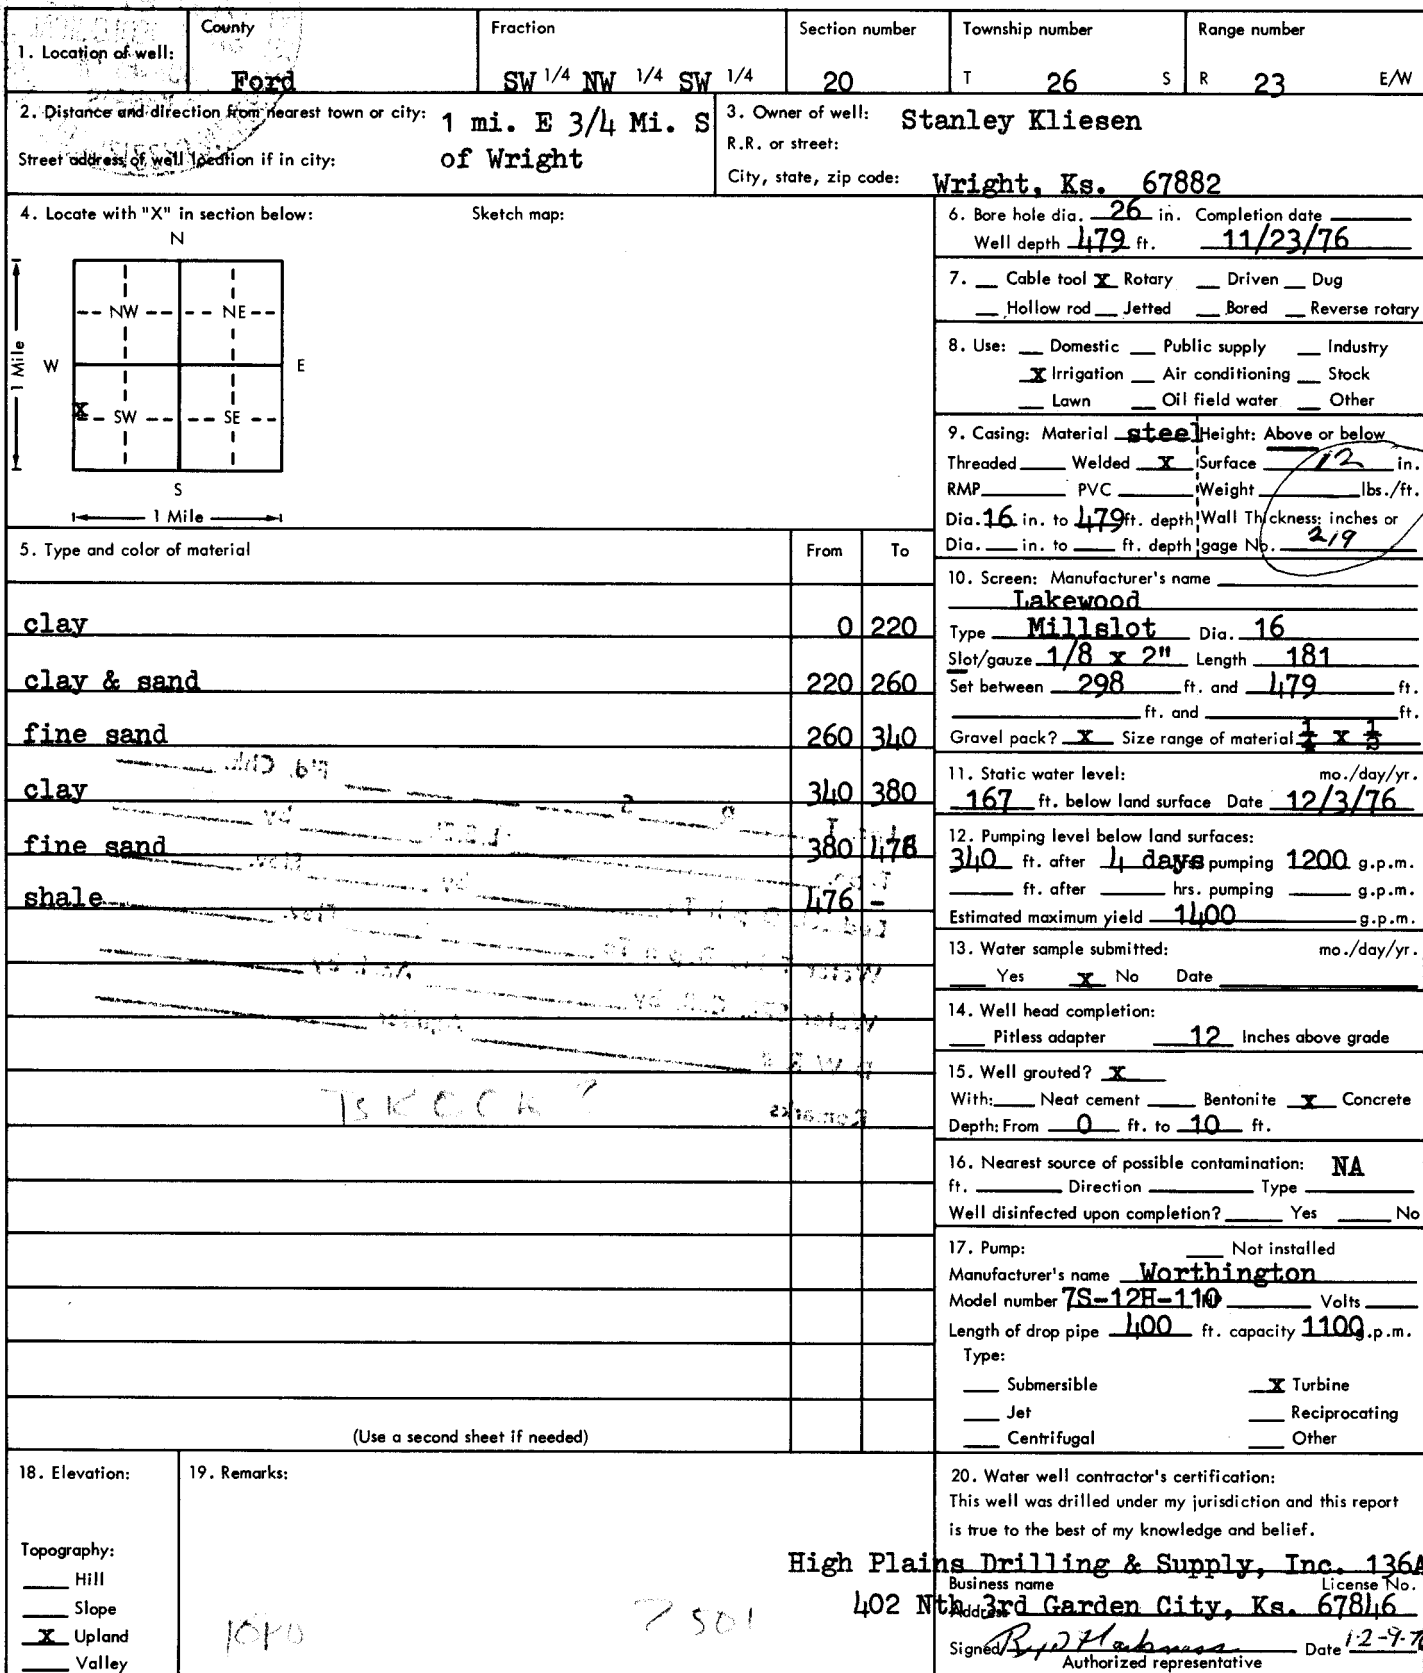 1. Location of well: County Fraction Section number Township number Range number
Ford SW 1/4 NW 1/4 SW 1/4 20 T 26 S R 23 E/W
2. Distance and direction from nearest town or city: 1 mi. E 3/4 Mi. S
Street address of well location if in city: of Wright
3. Owner of well: Stanley Kliesen
R.R. or street:
City, state, zip code: Wright, Ks. 67882
4. Locate with "X" in section below: Sketch map:
N
NW NE
W E
1 Mile
X SW SE
S
1 Mile
5. Type and color of material From To
clay 0 220
clay & sand 220 260
fine sand 260 340
clay 340 380
fine sand 380 476
shale 476 -
(Use a second sheet if needed)
6. Bore hole dia. 26 in. Completion date
Well depth 479 ft. 11/23/76
7. Cable tool X Rotary Driven Dug
Hollow rod Jetted Bored Reverse rotary
8. Use: Domestic Public supply Industry
X Irrigation Air conditioning Stock
Lawn Oil field water Other
9. Casing: Material steel Height: Above or below
Threaded Welded X Surface 12 in.
RMP PVC Weight lbs./ft.
Dia. 16 in. to 479 ft. depth Wall Thickness: inches or
Dia. in. to ft. depth gage No. 219
10. Screen: Manufacturer's name
Lakewood
Type Millslot Dia. 16
Slot/gauze 1/8 x 2" Length 181
Set between 298 ft. and 479 ft.
ft. and ft.
Gravel pack? X Size range of material
11. Static water level: mo./day/yr.
167 ft. below land surface Date 12/3/76
12. Pumping level below land surfaces:
340 ft. after 4 days pumping 1200 g.p.m.
ft. after hrs. pumping g.p.m.
Estimated maximum yield 1400 g.p.m.
13. Water sample submitted: mo./day/yr.
Yes X No Date
14. Well head completion:
Pitless adapter 12 Inches above grade
15. Well grouted? X
With: Neat cement Bentonite X Concrete
Depth: From 0 ft. to 10 ft.
16. Nearest source of possible contamination: NA
ft. Direction Type
Well disinfected upon completion? Yes No
17. Pump: Not installed
Manufacturer's name Worthington
Model number 7S-12H-110 Volts
Length of drop pipe 400 ft. capacity 1100 g.p.m.
Type:
Submersible X Turbine
Jet Reciprocating
Centrifugal Other
18. Elevation:
Topography:
Hill
Slope
X Upland
Valley
19. Remarks:
? 501
20. Water well contractor's certification:
This well was drilled under my jurisdiction and this report
is true to the best of my knowledge and belief.
High Plains Drilling & Supply, Inc. 136A
Business name License No.
402 Nth 3rd Garden City, Ks. 67846
Address
Signed Date 12-9-76
Authorized representative